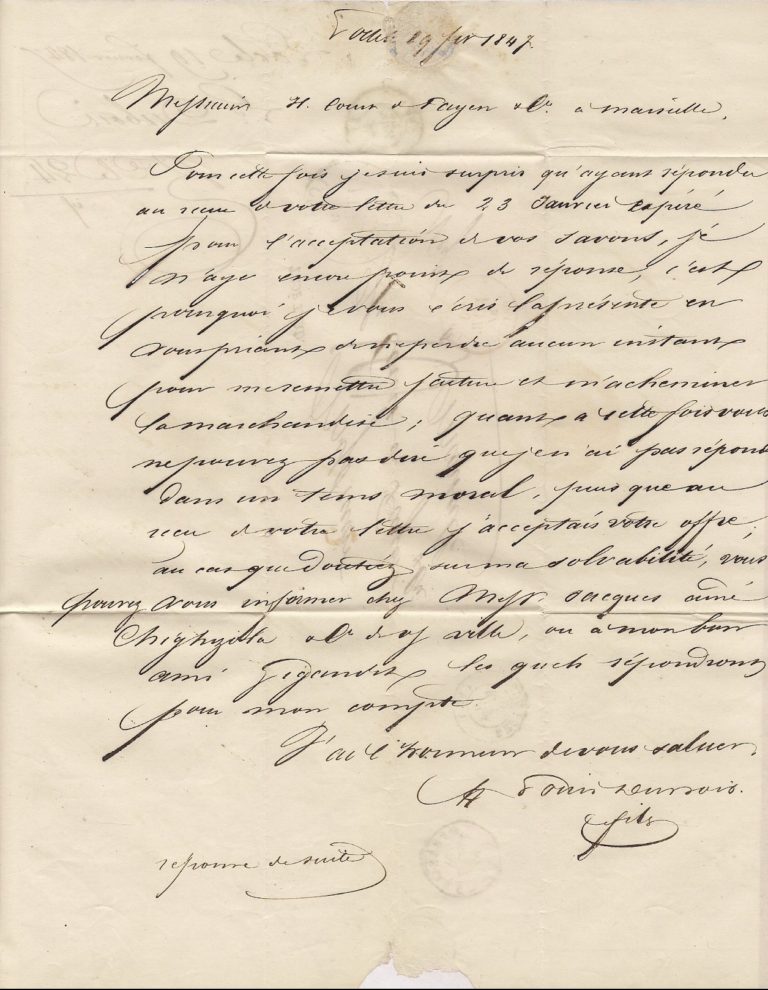 19 fer 1847
Messieurs H. Cour & Payen & Ce. à Marseille,
Pour cette fois je suis surpris qu'ayant répondu
au recu de votre lettre du 23 Janvier
pour l'acceptation de vos savons, je
n'aye encore point de réponse; c'est
pourquoi je vous écris la présente en
vous priant de ne perdre aucun instant
pour me remettre facture et m'acheminer
la marchandise; quant à cette fois vous
ne pouvez pas dire que je n'ai pas répondu
dans un tems moral, puis que au
recu de votre lettre j'acceptais votre offre;
au cas que doutiez sur ma solvabilité, vous
pouvez vous informer chez Messr. Jacques aimé
& Ce de vj ville, ou à mon bon
ami Gigandet les quels répondront
pour mon compte.
J'ai l'honneur de vous saluer,
fils
reponse de suite